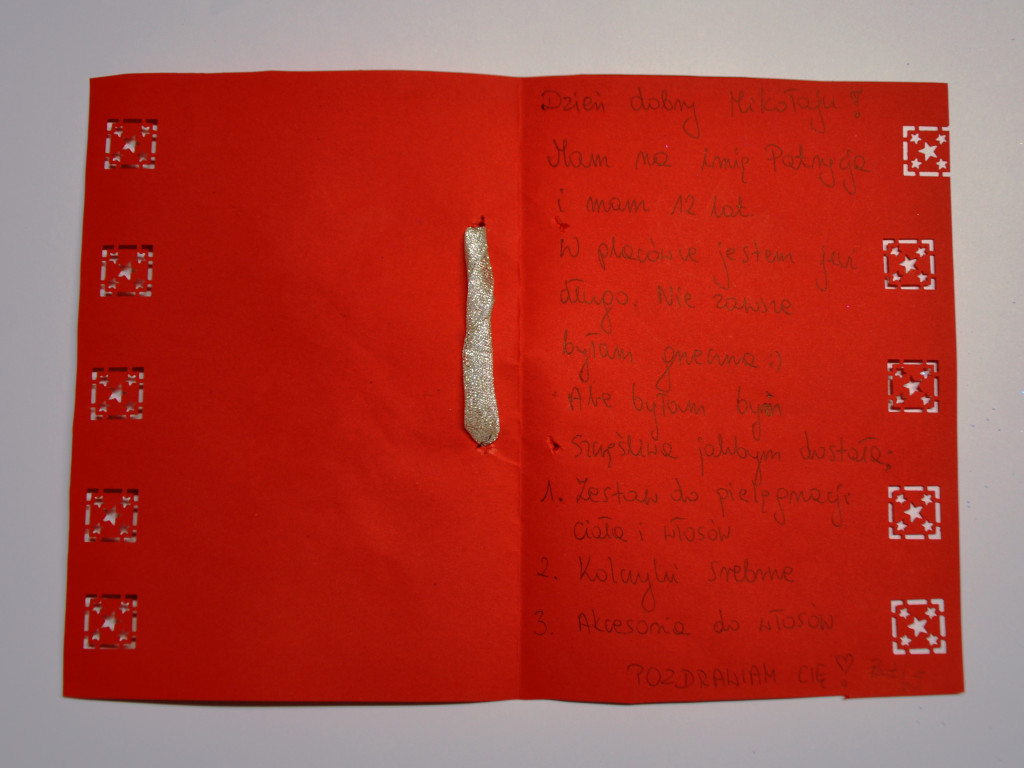 Dzień dobry Mikołaju!
Mam na imię Patrycja
i mam 12 lat
W placówce jestem już
długo. Nie zawsze
byłam grzeczna :)
Ale byłam bym
szczęśliwa jakbym dostała;
1. Zestaw do pielęgnacji
ciała i włosów
2. Kolczyki srebrne
3. Akcesoria do włosów
POZDRAWIAM CIĘ ♡!